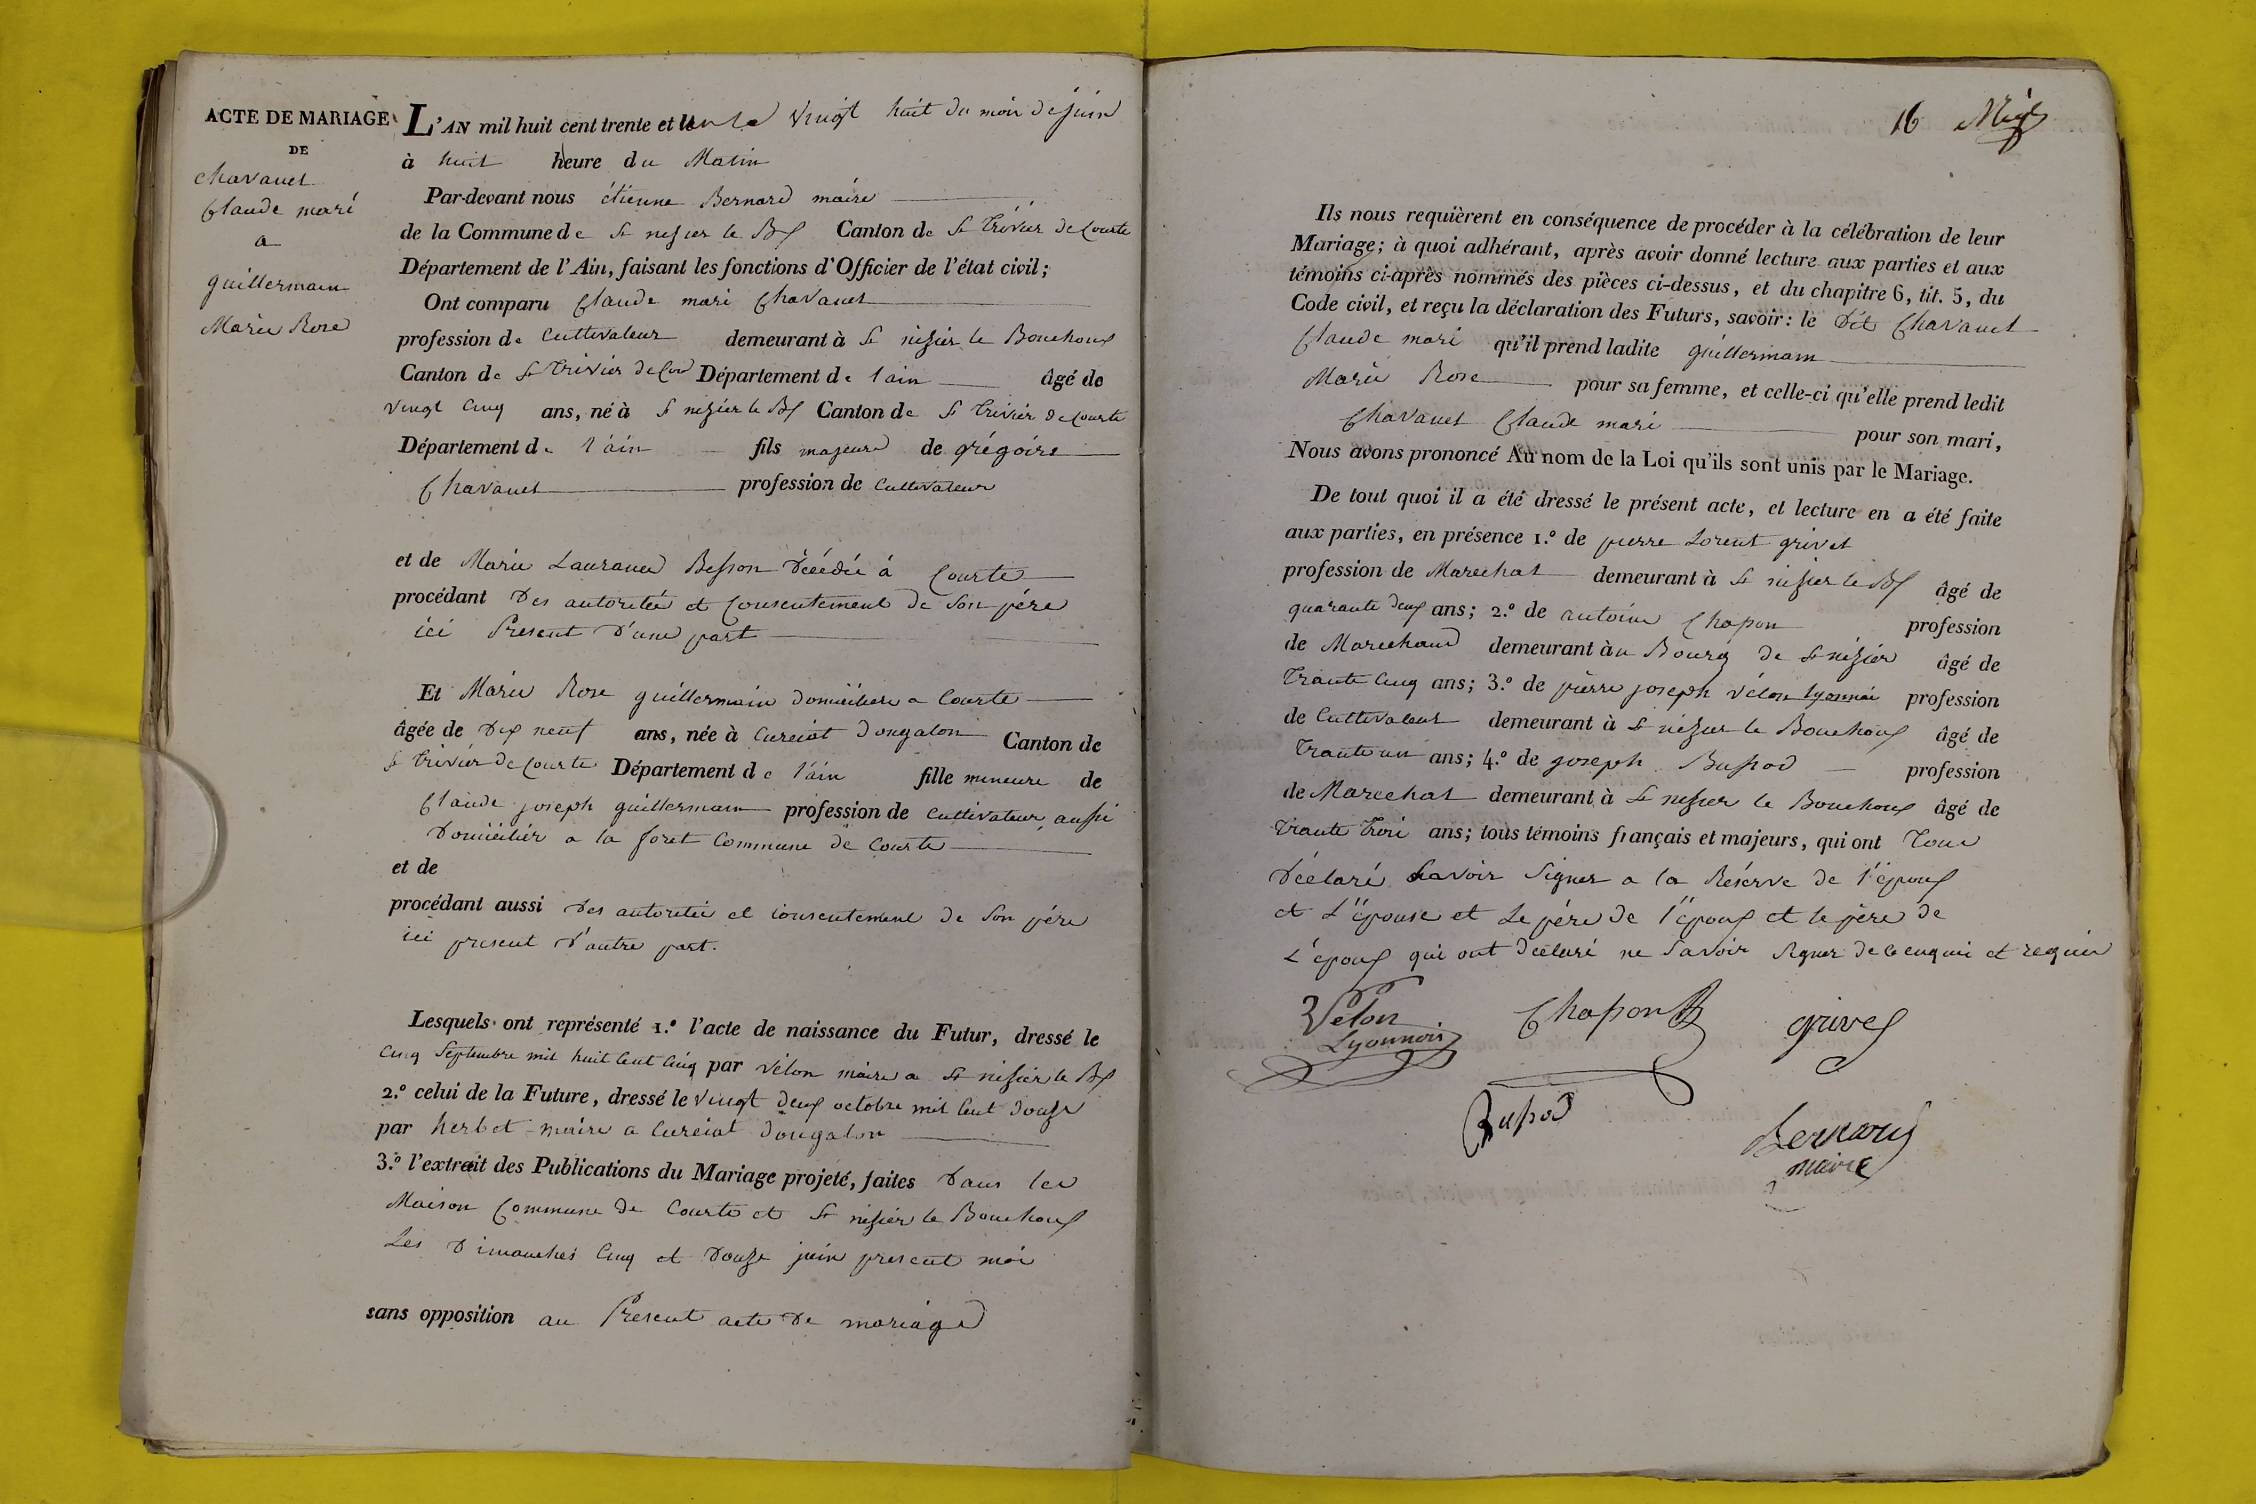 ACTE DE MARIAGE
DE
Chavanet
Claude mari
a
guillermain
Marie Rose
L'AN mil huit cent trente et un le vingt huit du mois de juin
à huit heure du Matin
Par-devant nous étienne Bernard maire
de la Commune de St nesier le Bx Canton de St Trivier de Courte
Département de l'Ain, faisant les fonctions d'Officier de l'état civil;
Ont comparu Claude mari Chavanet
profession de Cultivateur demeurant à St nizier le Bouchoux
Canton de St Trivier de Cour Département de l'ain âgé de
vingt Cinq ans, né à St nizier le Bx Canton de St Trivier de Courte
Département de l'ain fils majeure de grégoire
Chavanet profession de Cultivateur
et de Marie Laurance Besson décédée à Courte
procédant des autoritée et Consentement de Son pére
ici Present d'une part
Et Marie Rose guillermain domiciliere a Courte
âgée de dix neuf ans, née à Cureiat dongalon Canton de
St Trivier de Courte Département de l'ain fille mineure de
Claude joseph guillermain profession de Cultivateur aussi
domicilier a la foret Commune de Courte
et de
procédant aussi des autoritée et consentement de Son pére
ici present d'autre part.
Lesquels ont représenté 1.º l'acte de naissance du Futur, dressé le
Cinq Septembre mil huit Cent Cinq par vélon maire a St nisier le Bx
2.º celui de la Future, dressé le vingt deux octobre mil Cent douze
par herbet maire a Cureiat dongalon
3.º l'extrait des Publications du Mariage projeté, faites dans les
Maison Commune de Courte et St nisier le Bouchoux
Les dimanches Cinq et douze juin present moi
sans opposition au Present acte de mariage
16
Ils nous requièrent en conséquence de procéder à la célébration de leur
Mariage; à quoi adhérant, après avoir donné lecture aux parties et aux
témoins ci-après nommés des pièces ci-dessus, et du chapitre 6, tit. 5, du
Code civil, et reçu la déclaration des Futurs, savoir: le dit Chavanet
Claude mari qu'il prend ladite guillermain
Marie Rose pour sa femme, et celle-ci qu'elle prend ledit
Chavanet Claude mari pour son mari,
Nous avons prononcé Au nom de la Loi qu'ils sont unis par le Mariage.
De tout quoi il a été dressé le présent acte, et lecture en a été faite
aux parties, en présence 1.º de pierre Lorent grivet
profession de Marechat demeurant à St nisier le Bx âgé de
quarante deux ans; 2.º de antoine Chapon profession
de Marechand demeurant à u Bourg de St nizier âgé de
Trante Cinq ans; 3.º de pierre joseph vélon lyonnai profession
de Cultivateur demeurant à St nésier le Bouchoux âgé de
Trante un ans; 4.º de joseph Bussod profession
de Marechat demeurant à St nesier le Bouchoux âgé de
Trante troi ans; tous témoins français et majeurs, qui ont Tous
déclaré Savoir Signer a la Réserve de l'époux
et L'épouse et Le pére de l'époux et le pére de
L'époux qui ont déclaré ne Savoir signer de ce enquis et requis
Velon
Lyonnois
Chapon
grivet
Bussod
Bernard
maire